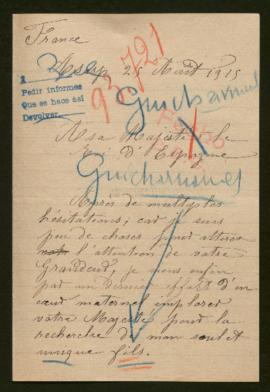 France
Août 1915
93721
A
Pedir informes
Que se hace así
Devolver.
A sa Majesté le
Roi d'Espagne
Après de multiples
hésitations; car je suis
peu de chose pour attirer
l'attention de votre
Grandeur, je viens enfin,
par un dernier effort d'un
cœur maternel implorer
votre Majesté pour la
recherche de mon seul et
unique fils.